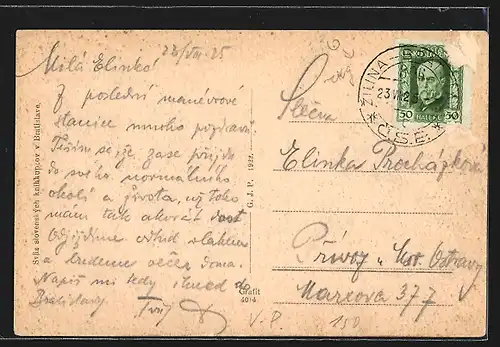 23/VII. 25
Milá Elinko!
Z poslední manévrové
stanice mnoho pozdravů.
Těším se, že zase přijdu
do svého normálního
okolí a života, už toho
mám tak akorát dost
Odjíždíme odtud vlakem
a budeme večer doma.
Napiš mi tedy ihned do
Bratislavy
Tvůj
Svjla slovenských knihkupcov v Bratislave.
G. J. P. 1922.
Grafit
4014
ŽILINA
23.VII.25
Č.S.R.
50 HALÉŘŮ 50
Slečna
Elinka Procházková
Přívoz u Mor. Ostravy
Marxova 377
V.P. 150